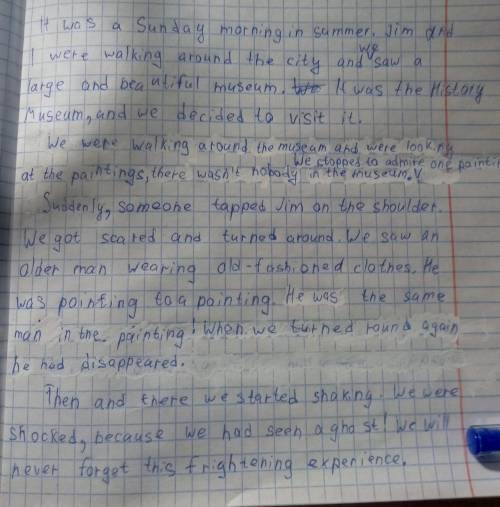 It was a Sunday morning in summer. Jim and
I were walking around the city and we saw a
large and beautiful museum. It was the History
Museum, and we decided to visit it.
We were walking around the museum and were looking
at the paintings, there wasn't nobody in the museum. We stopped to admire one painting
Suddenly, someone tapped Jim on the shoulder.
We got scared and turned around. We saw an
older man wearing old-fashioned clothes. He
was pointing to a painting. He was the same
man in the painting! When we turned round again
he had disappeared.
Then and there we started shaking. We were
shocked, because we had seen a ghost! We will
never forget this frightening experience.